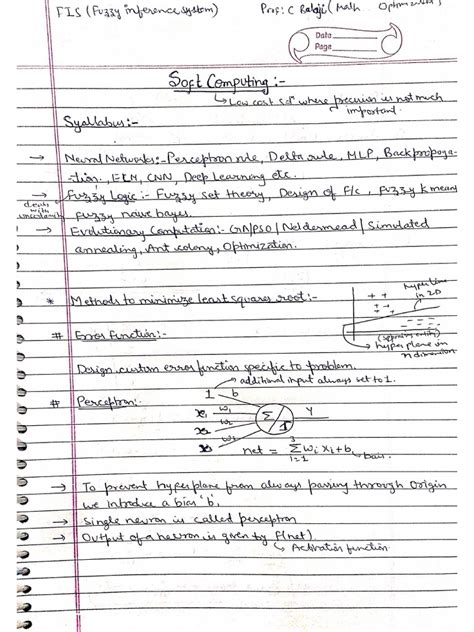 FIS (Fuzzy inference system)
Prof: C Balaji (Math Optimization)
Date
Page
Soft Computing :-
↳ Low cost sol^n where precision is not much
important.
Syallabus:-
→ Neural Networks:- Perceptron rule, Delta rule, MLP, Backpropoga-
-tion, CNN, Deep Learning etc.
→ Fuzzy Logic :- Fuzzy set theory, Design of F/c, Fuzzy k means
deals with uncertainty
Fuzzy naive bayes.
→ Evolutionary Computation:- GA/PSO/Neldermead/Simulated
annealing, Ant colony, Optimization.
* Methods to minimize least squares root:-
hyper line in 2D
+ +
+ + +
(separating entity)
→ hyperplane in n dimension
# Error Function:-
Design custom error function specific to problem.
→ additional input always set to 1.
# Perceptron:-
1 b
x₁ w₁
x₂ w₂
x₃ w₃
Σ/f
Y
net = Σ wᵢxᵢ + b
3
i=1
→ To prevent hyperplane from always passing through Origin
we introduce a bias 'b'.
→ Single neuron is called perceptron
→ Output of a neuron is given by f(net)
↳ Activation function